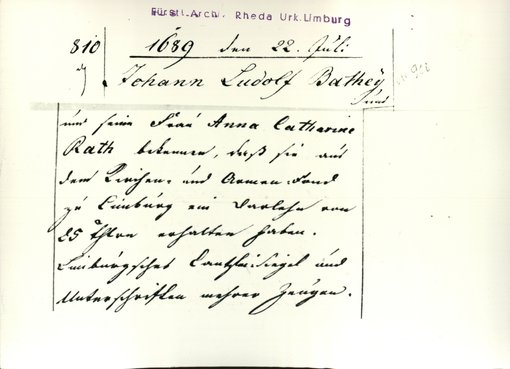 Fürstl. Arch. Rheda Urk. Limburg
810 1689 den 22. Juli.
Johann Ludolf Bathey
und seine Frau Anna Catharine
Rath bekennen, daß sie aus
dem Kirchen- und Armen-Fond
zu Limburg ein Darlehn von
25 Thlrn erhalten haben.
Limburgsches Canzleisiegel und
Unterschriften mehrer Zeugen.